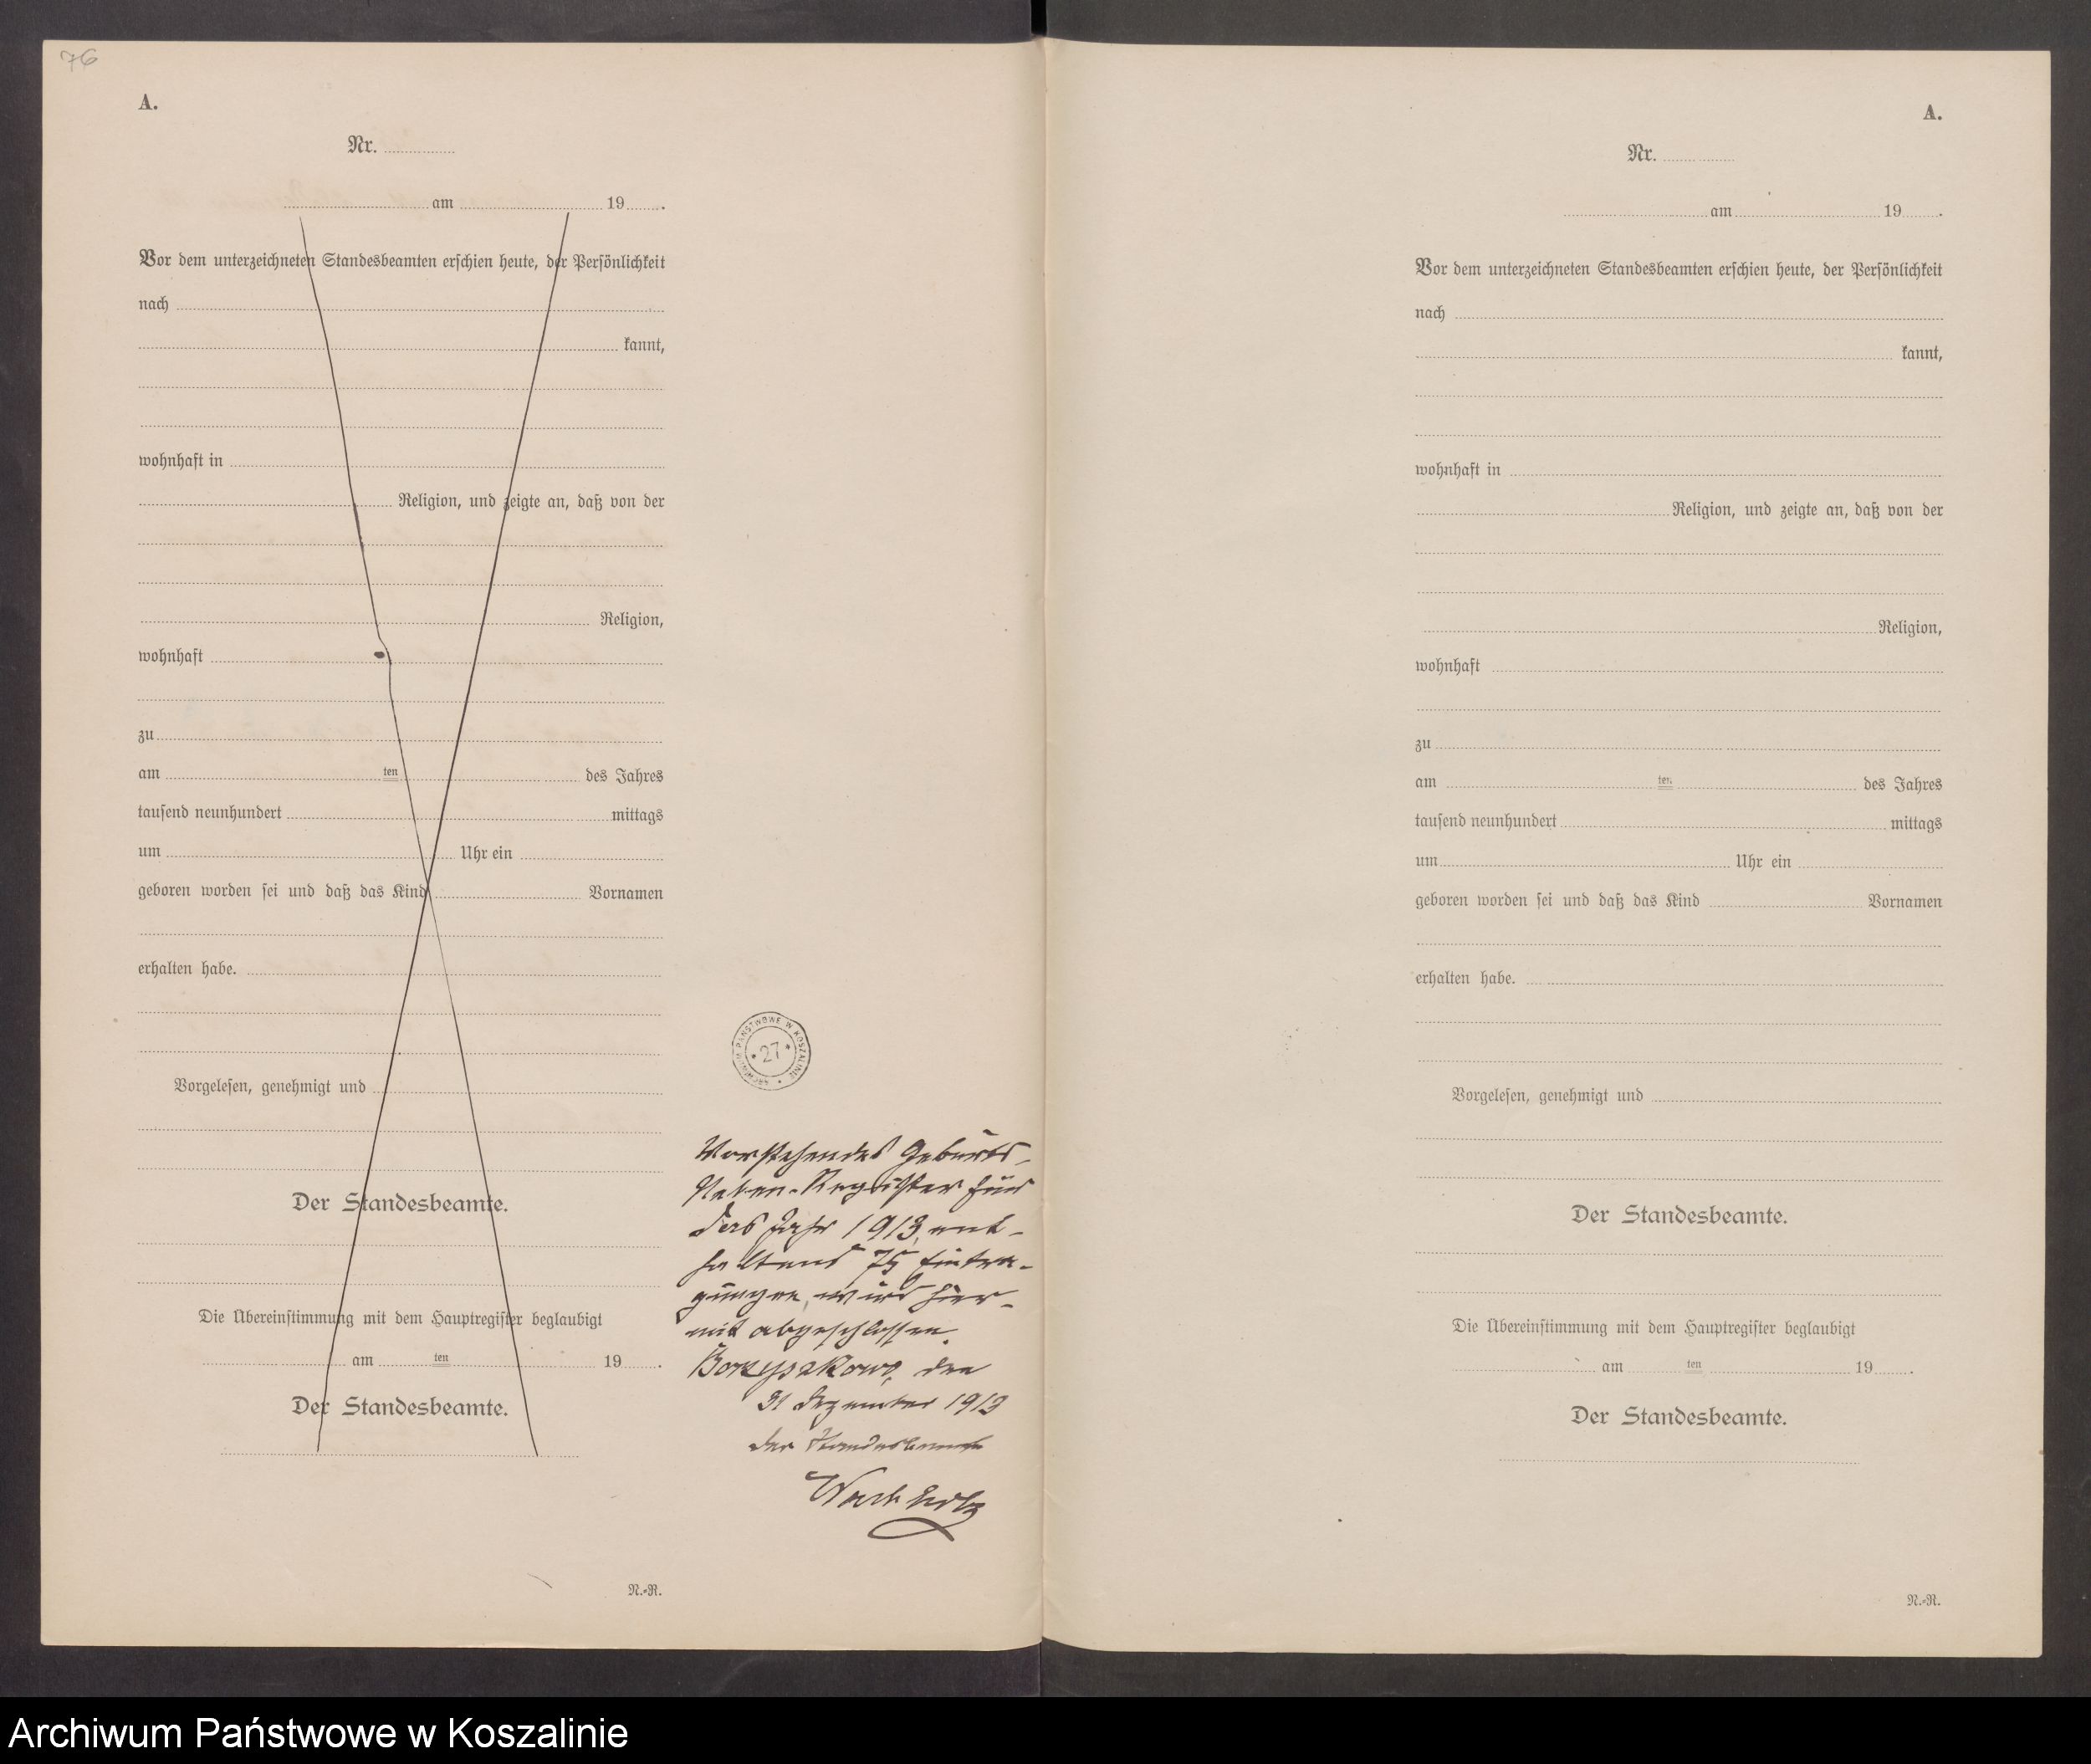 76
A.
Nr.
am 19 .
Vor dem unterzeichneten Standesbeamten erschien heute, der Persönlichkeit
nach
kannt,
wohnhaft in
Religion, und zeigte an, daß von der
Religion,
wohnhaft
zu
am ten des Jahres
tausend neunhundert mittags
um Uhr ein
geboren worden sei und daß das Kind Vornamen
erhalten habe.
Vorgelesen, genehmigt und
Der Standesbeamte.
Die Übereinstimmung mit dem Hauptregister beglaubigt
am ten 19 .
Der Standesbeamte.
N.-R.
ARCHIWUM PAŃSTWOWE W KOSZALINIE
* 27 *
Vorstehendes Geburts-
Neben-Register für
das Jahr 1913, ent-
haltend 75 Eintra-
gungen, wird hier-
mit abgeschlossen.
Borzyszkowo, den
31 Dezember 1913
Der Standesbeamte
Wachholz
A.
Nr.
am 19 .
Vor dem unterzeichneten Standesbeamten erschien heute, der Persönlichkeit
nach
kannt,
wohnhaft in
Religion, und zeigte an, daß von der
Religion,
wohnhaft
zu
am ten des Jahres
tausend neunhundert mittags
um Uhr ein
geboren worden sei und daß das Kind Vornamen
erhalten habe.
Vorgelesen, genehmigt und
Der Standesbeamte.
Die Übereinstimmung mit dem Hauptregister beglaubigt
am ten 19 .
Der Standesbeamte.
N.-R.
Archiwum Państwowe w Koszalinie